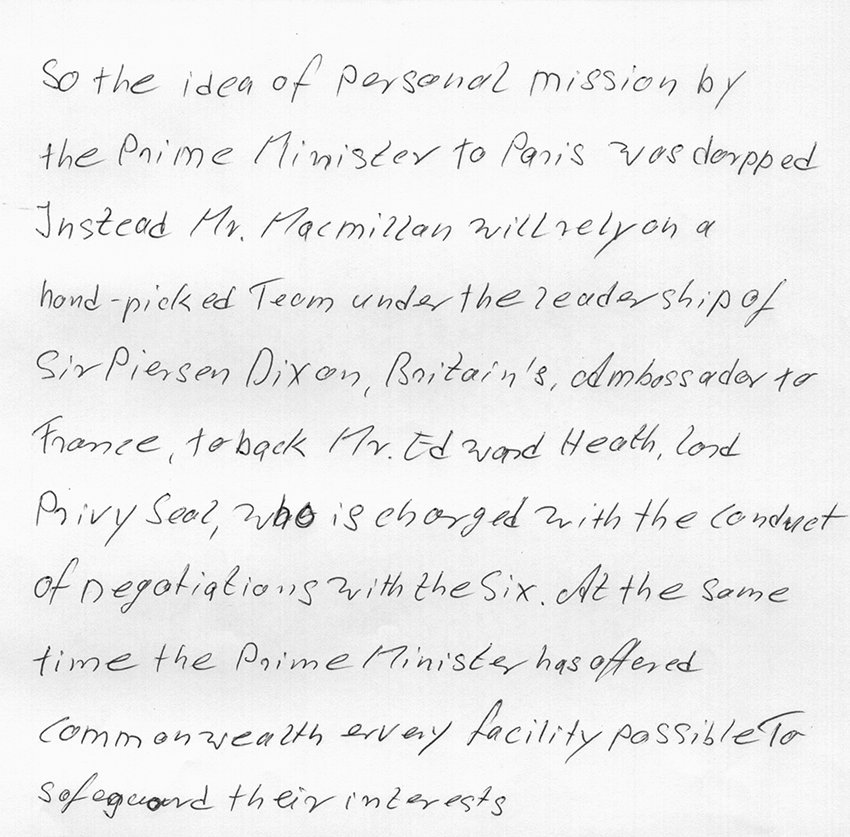 So the idea of personal mission by
the Prime Minister to Paris was dorpped
Instead Mr. Macmillan will rely on a
hand-picked Team under the leadership of
Sir Piersen Dixon, Britain's, Ambassador to
France, to back Mr. Edward Heath, lord
Privy Seal, who is charged with the conduct
of negotiations with the Six. At the same
time the Prime Minister has offered
commonwealth ervery facility possible To
safeguard their interests